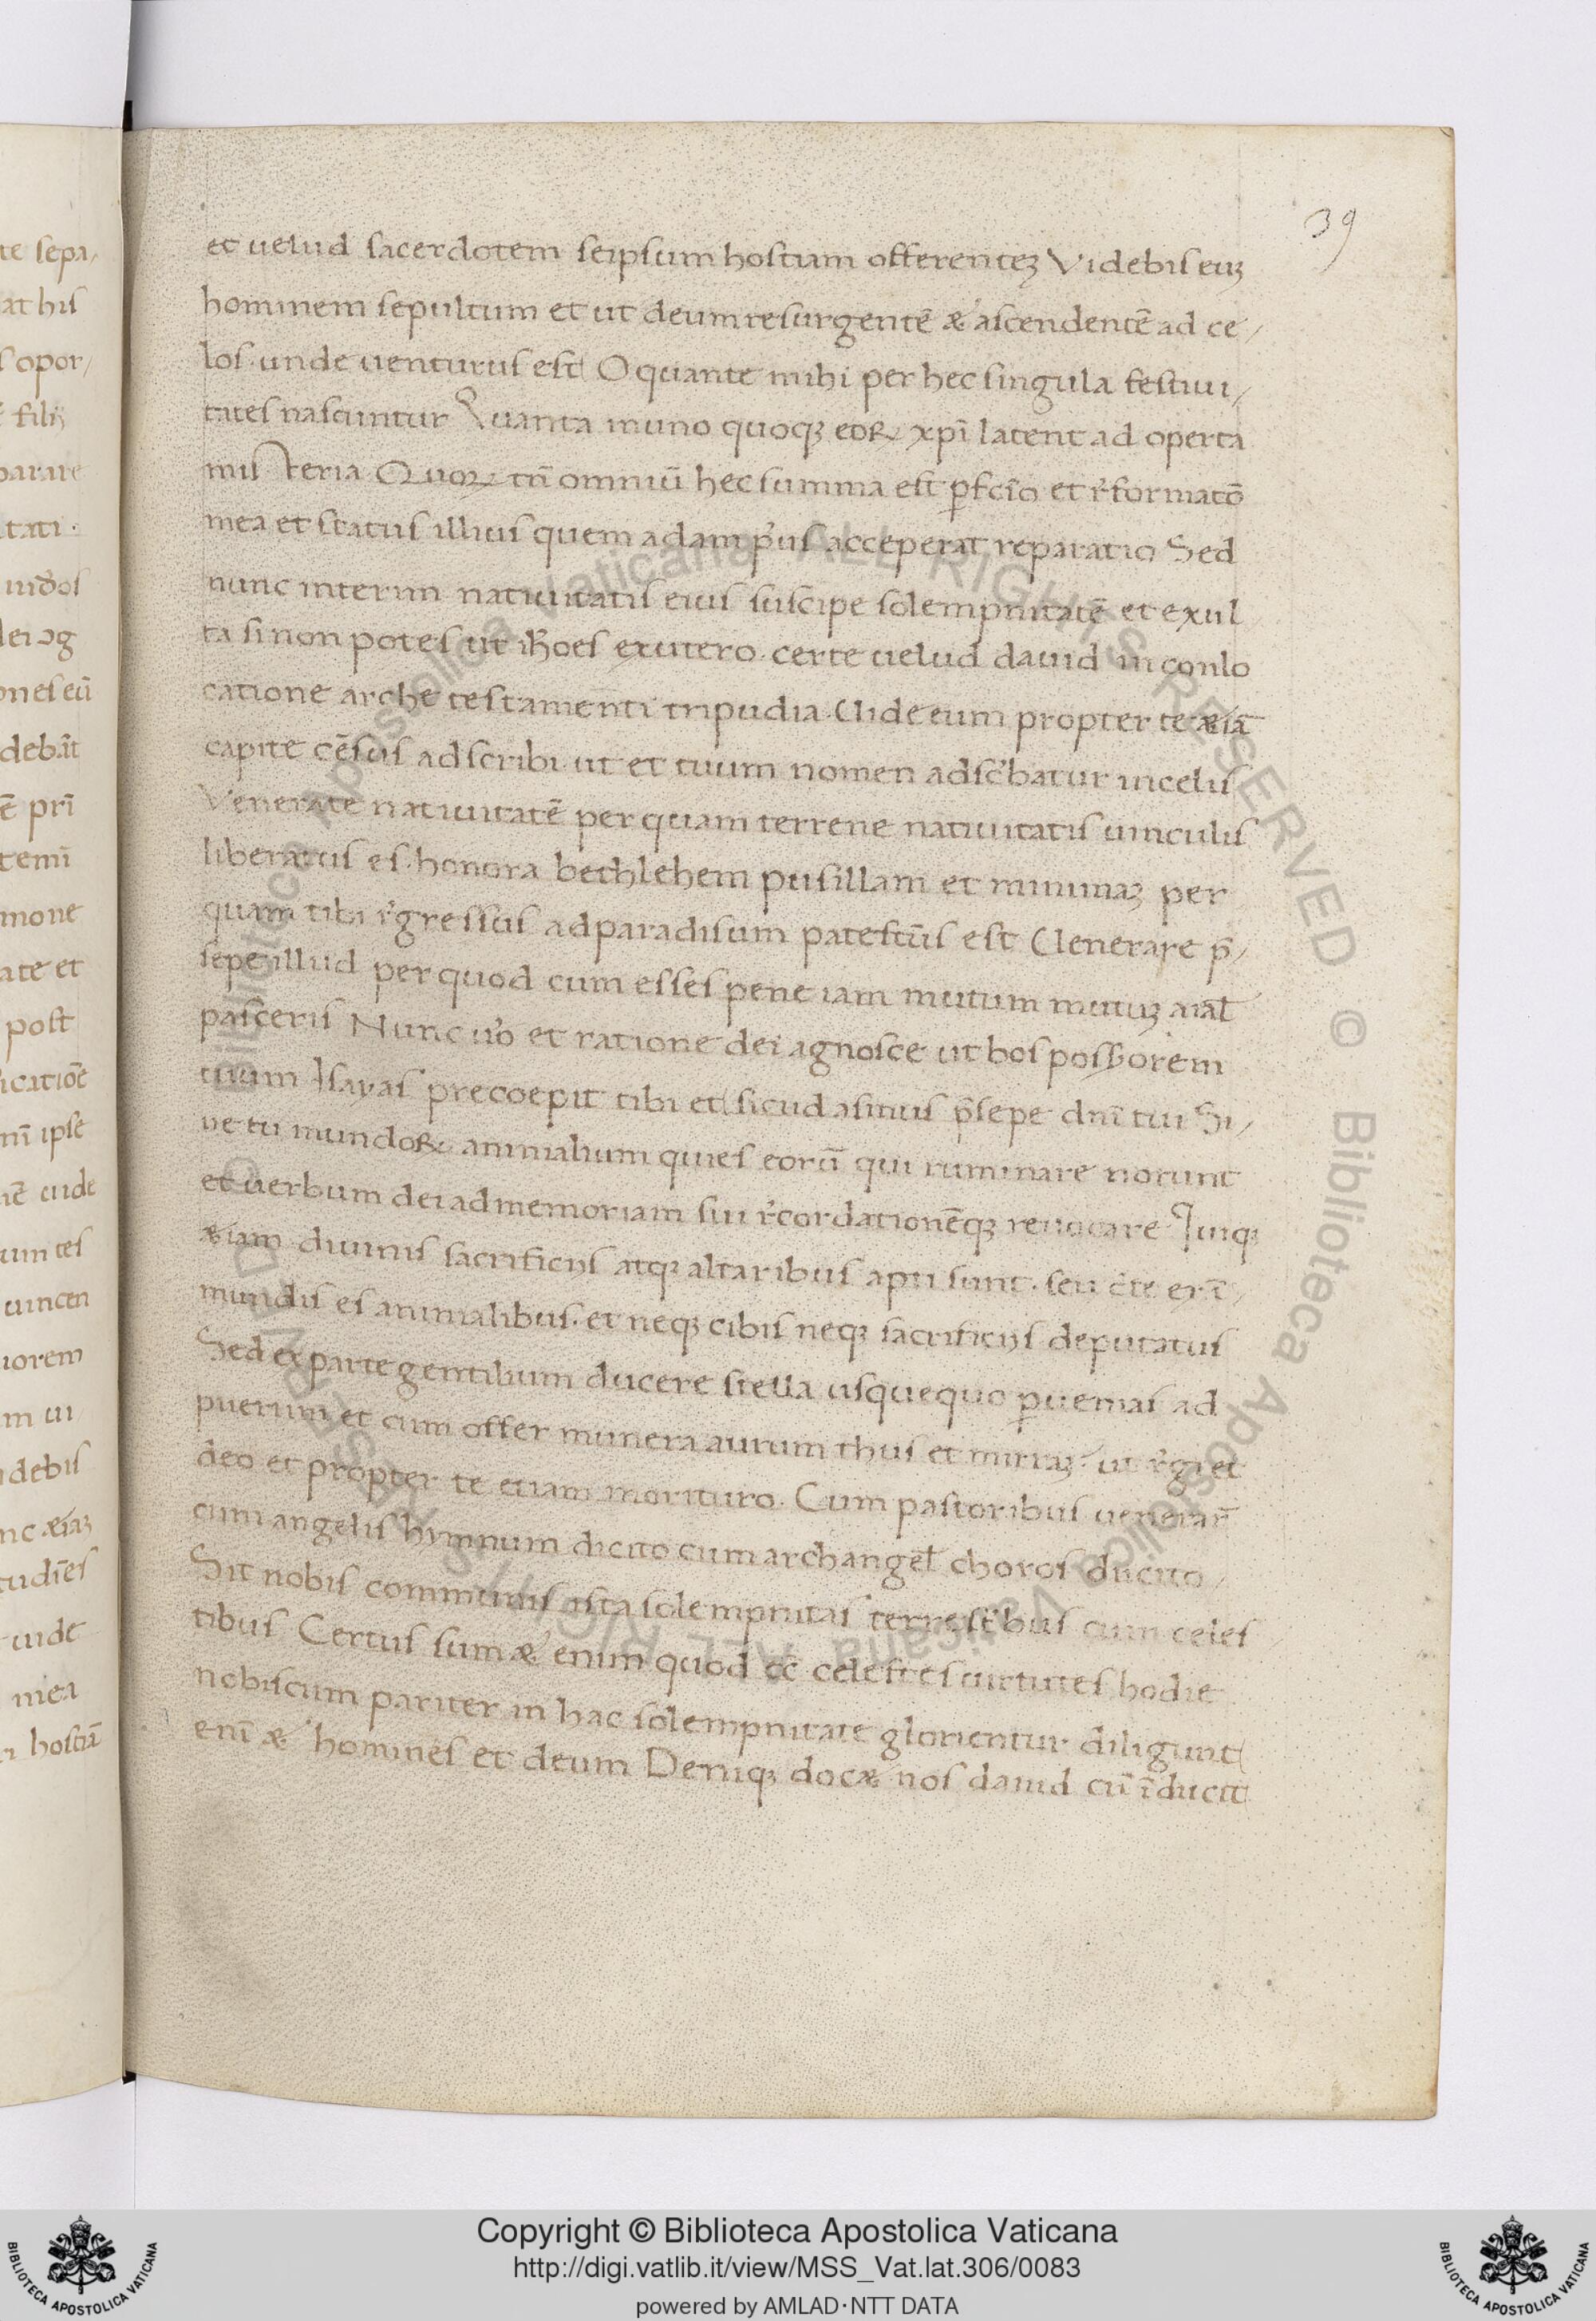 39
et uelud sacerdotem seipsum hostiam offerenteꝫ Videbis euꝫ
hominem sepultum et ut deum resurgentē & ascendentē ad ce
los· unde uenturus est O quante mihi per hec singula festiui
tates nascuntur Quanta in uno quoqꝫ eoꝝ xp̄i latent ad operta
misteria Quoꝝ tn̄ omniū hec summa est ꝑfcīo et rͥformatō
mea et status illius quem adam pͥus acceperat reparatio Sed
nunc interim natiuitatis eius suscipe solempnitatē et exul
ta si non potes ut iħoes ex utero· certe uelud dauid in conlo
catione arche testamenti tripudia· Uide eum propter te &iā
capite cēsus adscribi· ut et tuum nomen adscͥbatur in celis
Venerate natiuitatē per quam terrene natiuitatis uinculis
liberatus es· honora bethlehem pusillam et minimaꝫ per
quam tibi rͥgressus ad paradisum patefctūs est Uenerare p̄
sepe illud per quod cum esses pene iam mutum mutuꝫ aīal
pasceris Nunc uͦo et ratione dei agnosce ut bos possorem
tuum Isayas precoepit tibi et sicud asinus p̄sepe dnī tui Si
ue tu mundoꝝ animalium quies eorū qui ruminare norunt
et uerbum dei ad memoriam sui rͥcordationēqꝫ reuocare Iuiqꝫ
&iam diuinis sacrificijs atqꝫ altaribus apti sunt· seu cͥte ex ī
mundis es animalibus· et neqꝫ cibis neqꝫ sacrificijs deputatus
Sed ex parte gentilium ducere stella usquequo ꝑuenias ad
puerum et cum offer munera aurum thus et mirraꝫ· ut rͥgi et
deo et propter te etiam morituro· Cum pastoribus uenerar̄
cum angelis hymnum dicito cum archangel̄ choros ducito
Sit nobis communis ista solempnitas terrestͥbus cum celes
tibus Certus sum & enim quod cc̄ celestes uirtutes hodie
nobiscum pariter in hac solempnitate glorientur diligunt
enī & homines et deum Deniqꝫ doc& nos dauid cū īducit
Copyright © Biblioteca Apostolica Vaticana
http://digi.vatlib.it/view/MSS_Vat.lat.306/0083
powered by AMLAD·NTT DATA